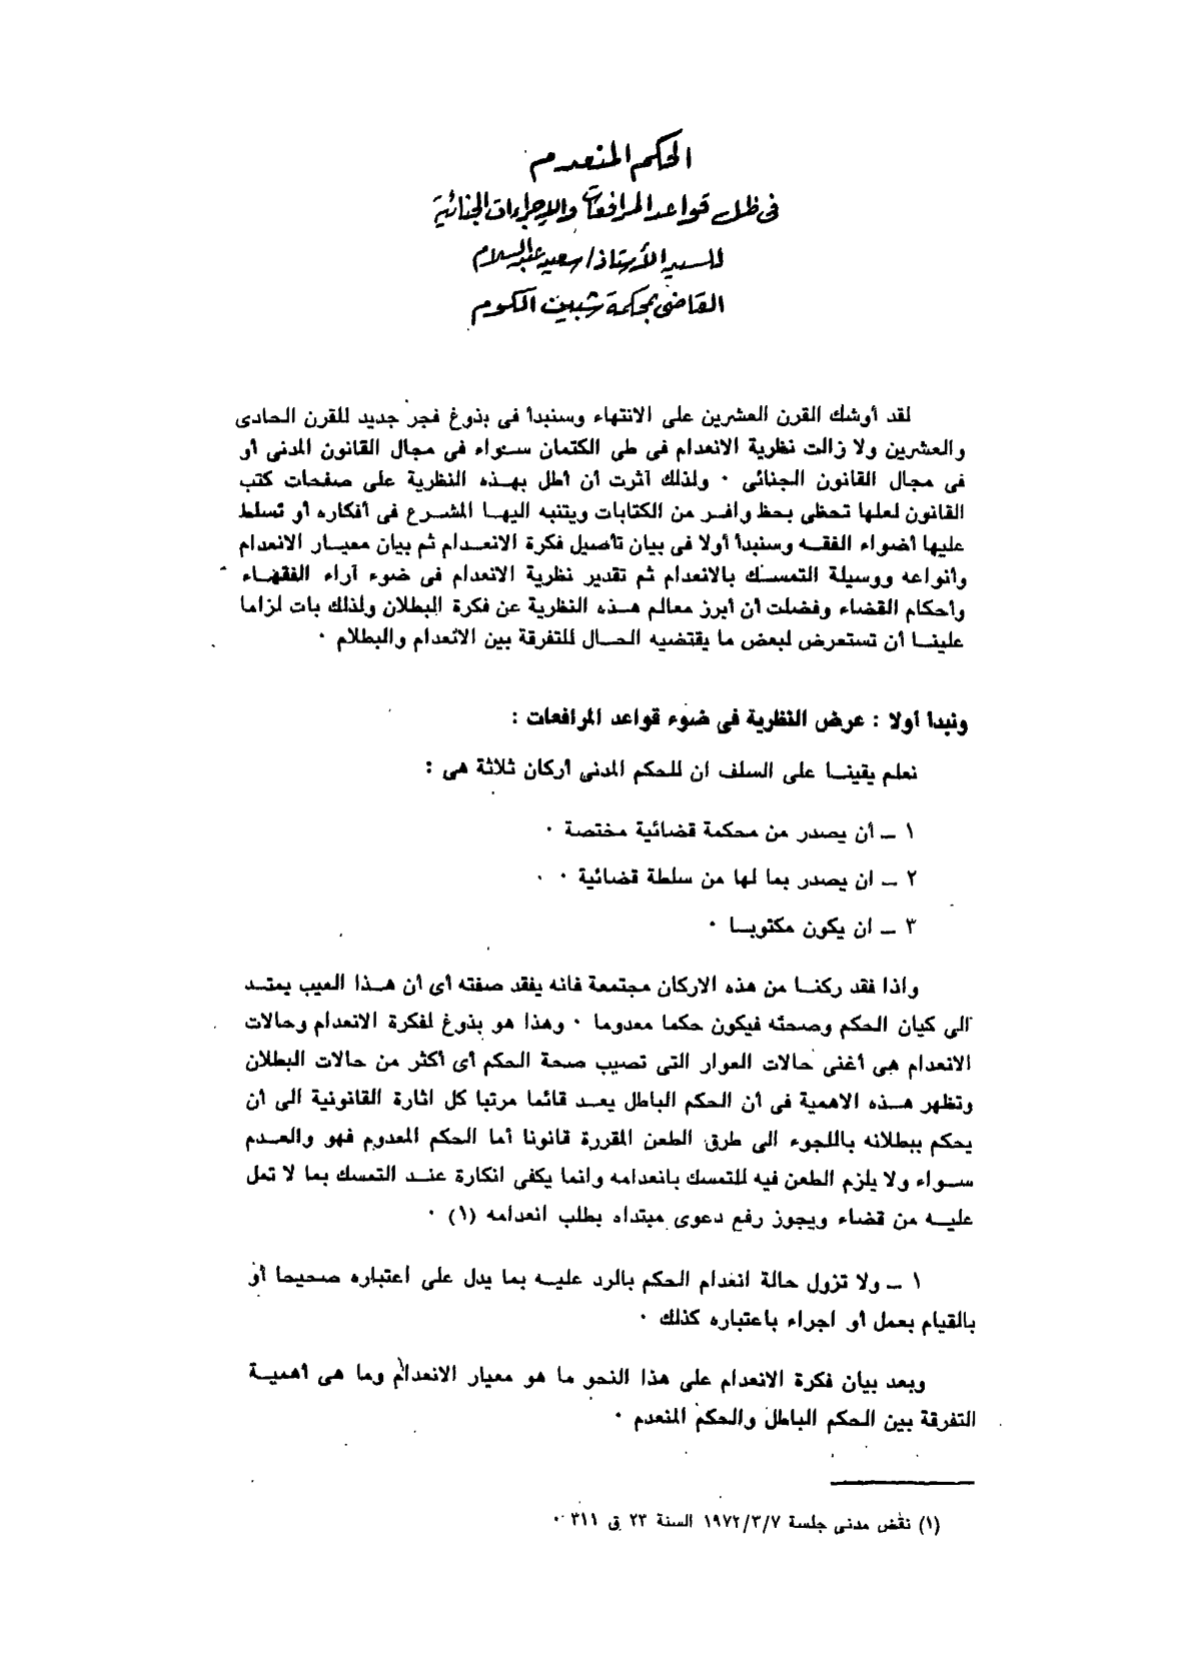 الحكم المنعدم
فى ظل قواعد المرافعات والإجراءات الجنائية
للسيد الأستاذ / سعيد عبد السلام
القاضى بمحكمة شبين الكوم
لقد أوشك القرن العشرين على الانتهاء وسنبدأ فى بذوغ فجر جديد للقرن الحادى
والعشرين ولا زالت نظرية الانعدام فى طى الكتمان سواء فى مجال القانون المدنى أو
فى مجال القانون الجنائى ٠ ولذلك آثرت أن أطل بهذه النظرية على صفحات كتب
القانون لعلها تحظى بحظ وافر من الكتابات ويتنبه اليها المشرع فى أفكاره أو تسلط
عليها أضواء الفقه وسنبدأ أولا فى بيان تأصيل فكرة الانعدام ثم بيان معيار الانعدام
وأنواعه ووسيلة التمسك بالانعدام ثم تقدير نظرية الانعدام فى ضوء آراء الفقهاء
وأحكام القضاء وفضلت أن أبرز معالم هذه النظرية عن فكرة البطلان ولذلك بات لزاما
علينا أن تستعرض لبعض ما يقتضيه الحال للتفرقة بين الانعدام والبطلام ٠
ونبدأ أولا : عرض النظرية فى ضوء قواعد المرافعات :
نعلم يقينا على السلف ان للحكم المدنى أركان ثلاثة هى :
١ ــ أن يصدر من محكمة قضائية مختصة ٠
٢ ــ ان يصدر بما لها من سلطة قضائية ٠
٣ ــ ان يكون مكتوبا ٠
واذا فقد ركنا من هذه الاركان مجتمعة فانه يفقد صفته أى أن هذا العيب يمتد
الى كيان الحكم وصحته فيكون حكما معدوما ٠ وهذا هو بذوغ لفكرة الانعدام وحالات
الانعدام هى أغنى حالات العوار التى تصيب صحة الحكم أى أكثر من حالات البطلان
وتظهر هذه الاهمية فى أن الحكم الباطل يعد قائما مرتبا كل اثارة القانونية الى أن
يحكم ببطلانه باللجوء الى طرق الطعن المقررة قانونا أما الحكم المعدوم فهو والعدم
سواء ولا يلزم الطعن فيه للتمسك بانعدامه وانما يكفى انكارة عند التمسك بما لا تمل
عليه من قضاء ويجوز رفع دعوى مبتداه بطلب انعدامه (١) ٠
١ ــ ولا تزول حالة انعدام الحكم بالرد عليه بما يدل على اعتباره صحيحا أو
بالقيام بعمل أو اجراء باعتباره كذلك ٠
وبعد بيان فكرة الانعدام على هذا النحو ما هو معيار الانعدام وما هى أهمية
التفرقة بين الحكم الباطل والحكم المنعدم ٠
(١) نقض مدنى جلسة ١٩٧٢/٣/٧ السنة ٢٣ ق ٣١١ ٠